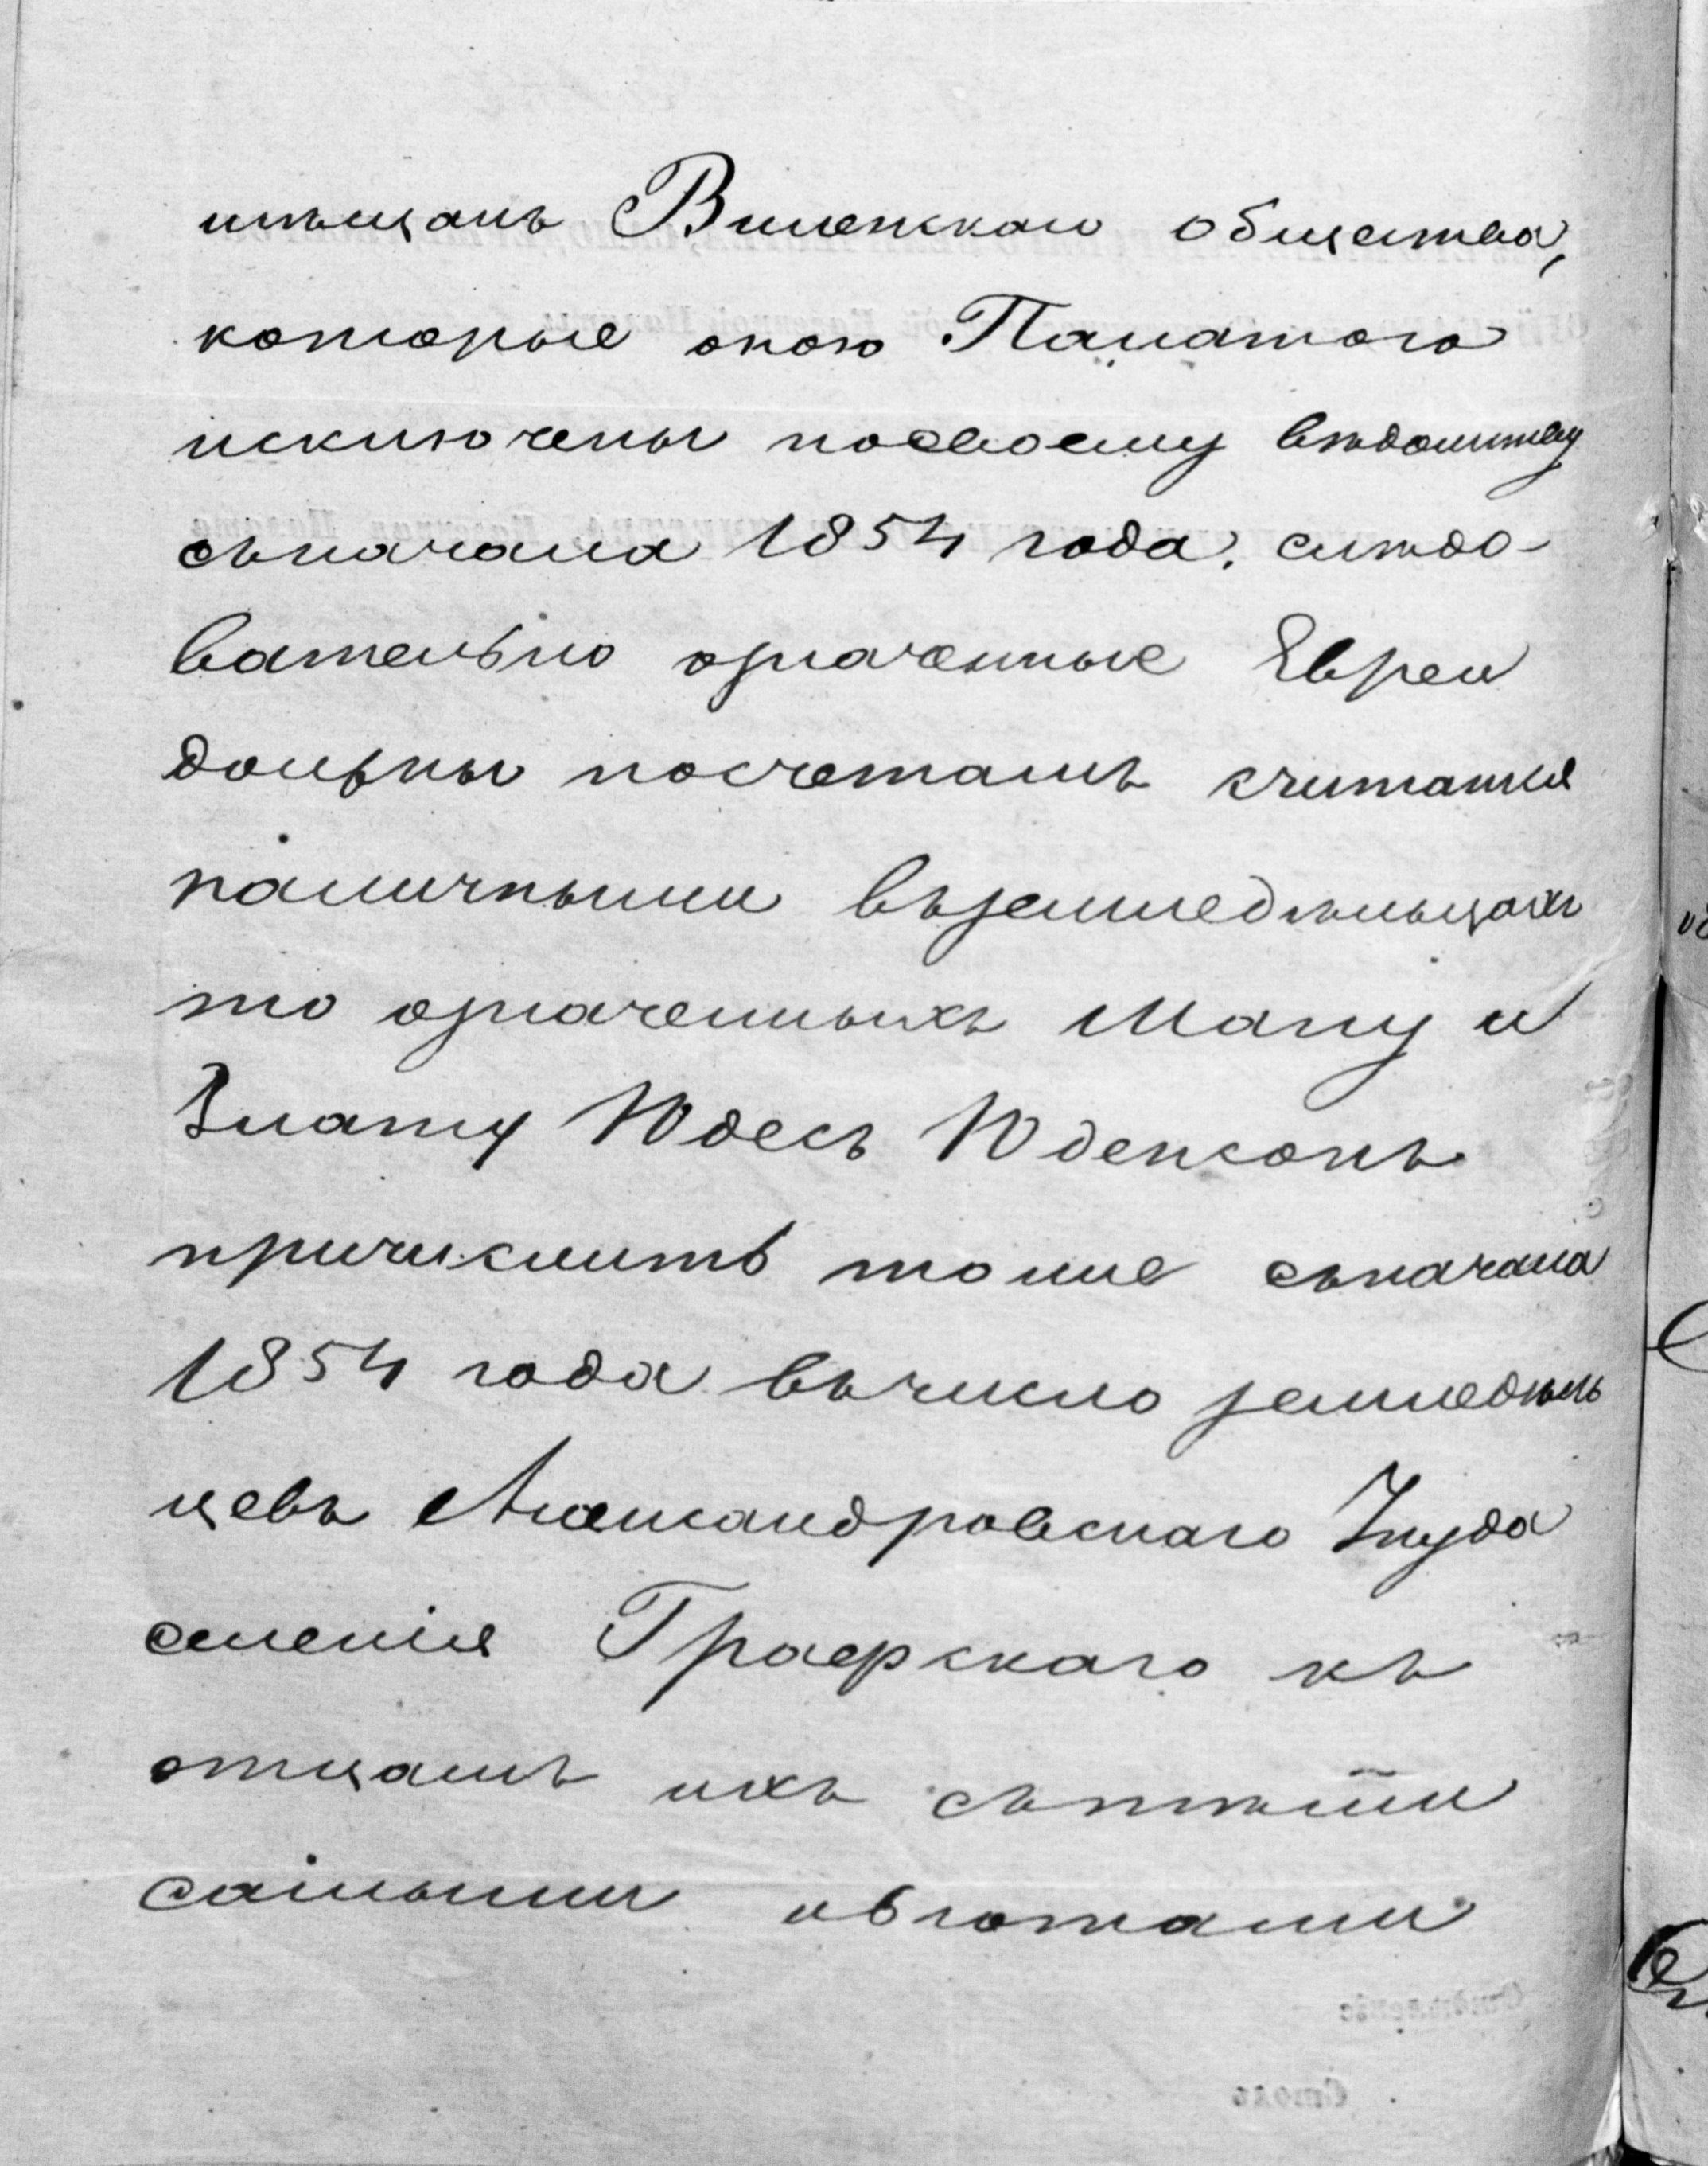 мѣщанъ Виленскаго общества,
которые оною Палатою
исключены посвоему вѣдомству
съначала 1854 года, слѣдо-
вательно означенные Евреи
должны посчетамъ считатся
наличными въземледѣльцахъ
то означенныхъ Ману и
Злату Юдесъ Юденсонъ
причислить тоже съначала
1854 года въчисло земледѣль
цевъ Александровскаго Уѣзда
селенія Графскаго къ
отцамъ ихъ сътѣми
самыми льготами